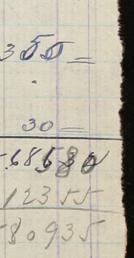 355=
30=
68580
12355
80935